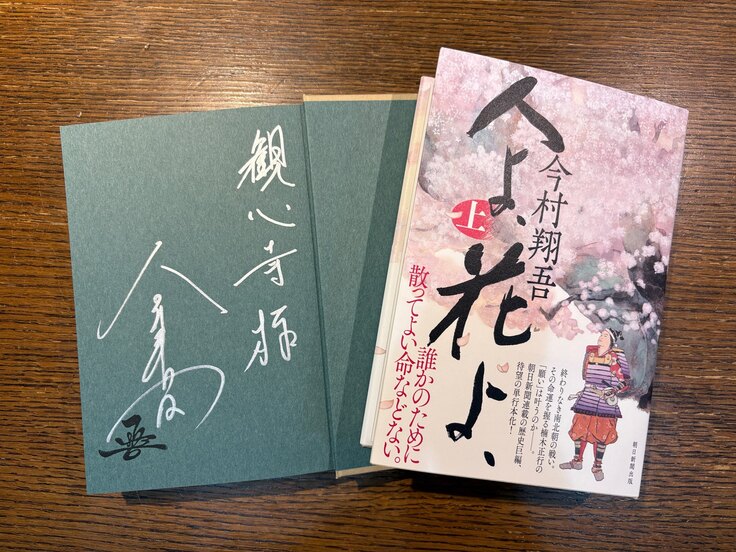 観心寺様
人よ、花よ、
今村翔吾
上
誰かのために
散ってよい命などない。
終わりなき南北朝の戦い、
その命運を握る楠木正行の
「願い」は叶うのか――。
朝日新聞連載の歴史巨編、
待望の単行本化!
朝日新聞出版